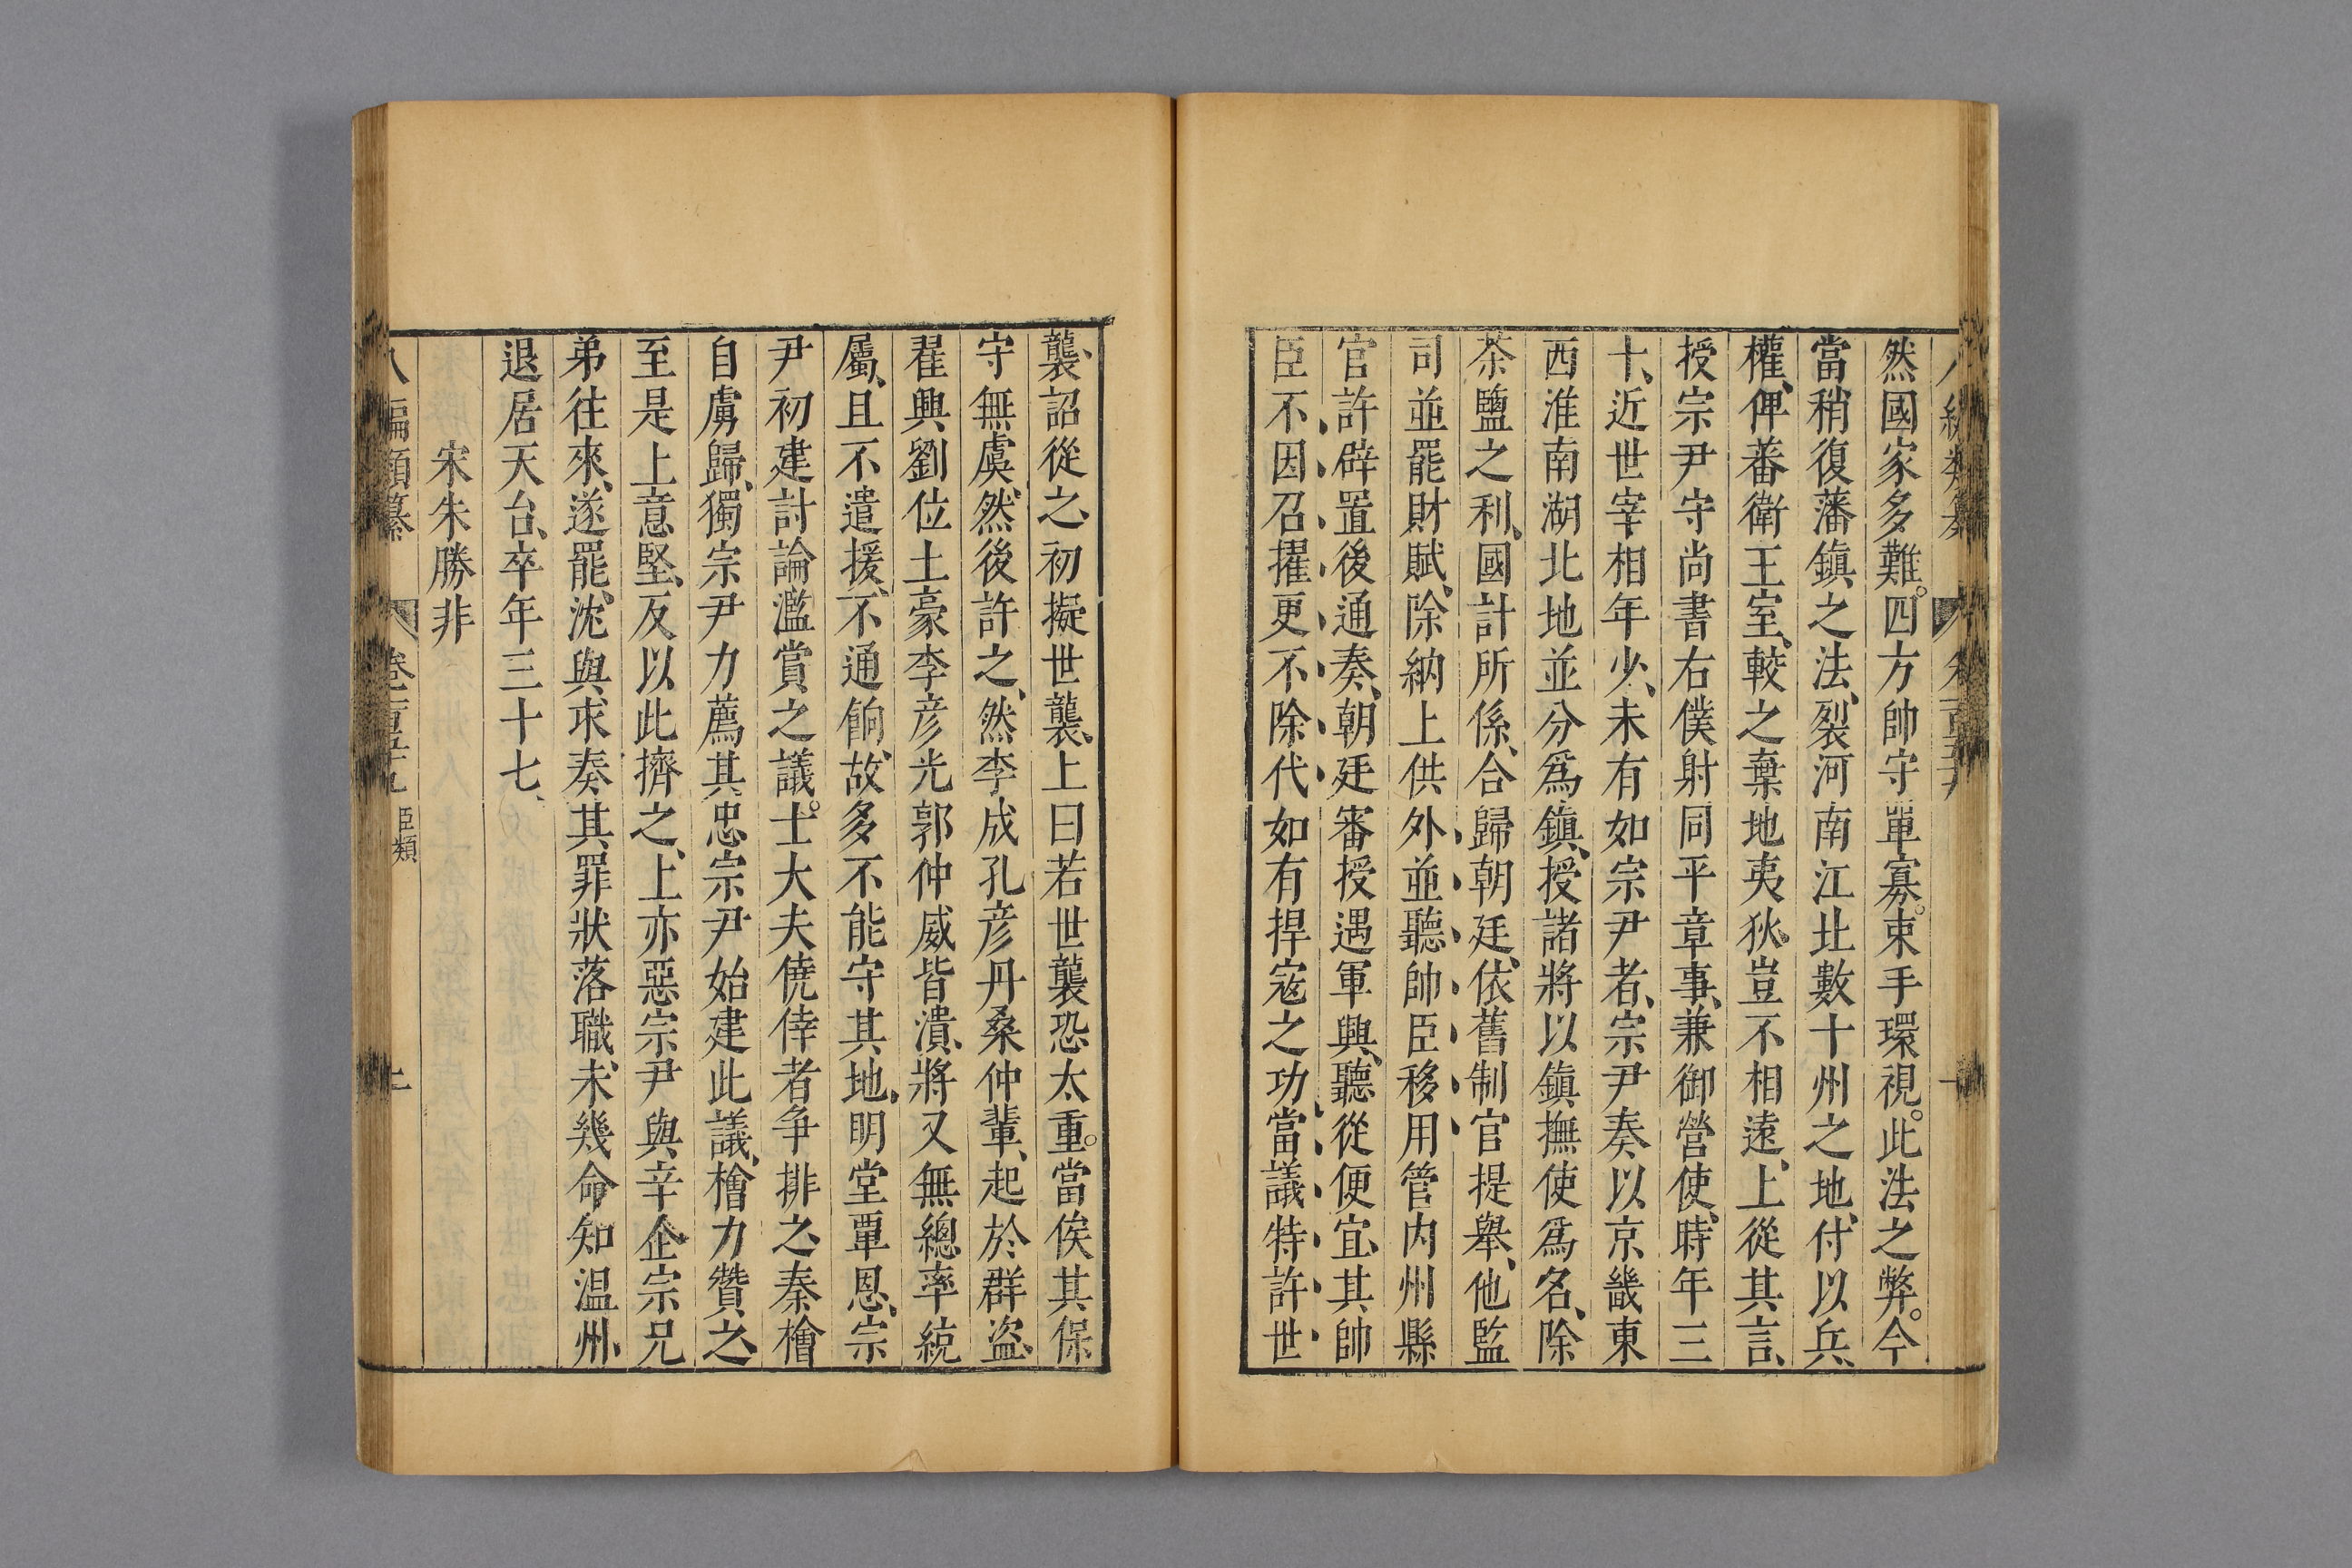 然國家多難。四方帥守單寡。束手環視。此法之弊。今
當稍復藩鎮之法、裂河南江北數十州之地、付以兵、
權、俾蕃衛王室、較之棄地夷狄、豈不相遠、上從其言、
授宗尹守尚書右僕射同平章事、兼御營使、時年三
十、近世宰相年少、未有如宗尹者、宗尹奏以京畿東
西淮南湖北地並分爲鎮、授諸將以鎮撫使爲名、除
茶鹽之利、國計所係、合歸朝廷、依舊制官提舉、他監
司並罷財賦、除納上供外、並聽帥臣移用管内州縣
官許辟置後通奏、朝廷審授遇軍興、聽從便宜、其帥
臣不因召擢更不除代如有捍寇之功當議特許世
襲、詔從之、初擬世襲、上曰若世襲恐太重。當俟其保
守無虞、然後許之、然李成孔彦丹桑仲輩、起於群盜、
翟興劉位土豪李彦光郭仲威皆潰將又無總率統
屬、且不遣援、不通餉、故多不能守其地、明堂覃恩、宗
尹初建討論濫賞之議。士大夫僥倖者争排之、秦檜
自虜歸、獨宗尹力薦其忠宗尹始建此議、檜力贊之、
至是上意堅、反以此擠之、上亦惡宗尹與辛企宗兄
弟往來、遂罷、沈與求奏其罪狀落職、未幾命知温州、
退居天台、卒年三十七、
宋朱勝非
八編類纂 卷一百五十九 臣類